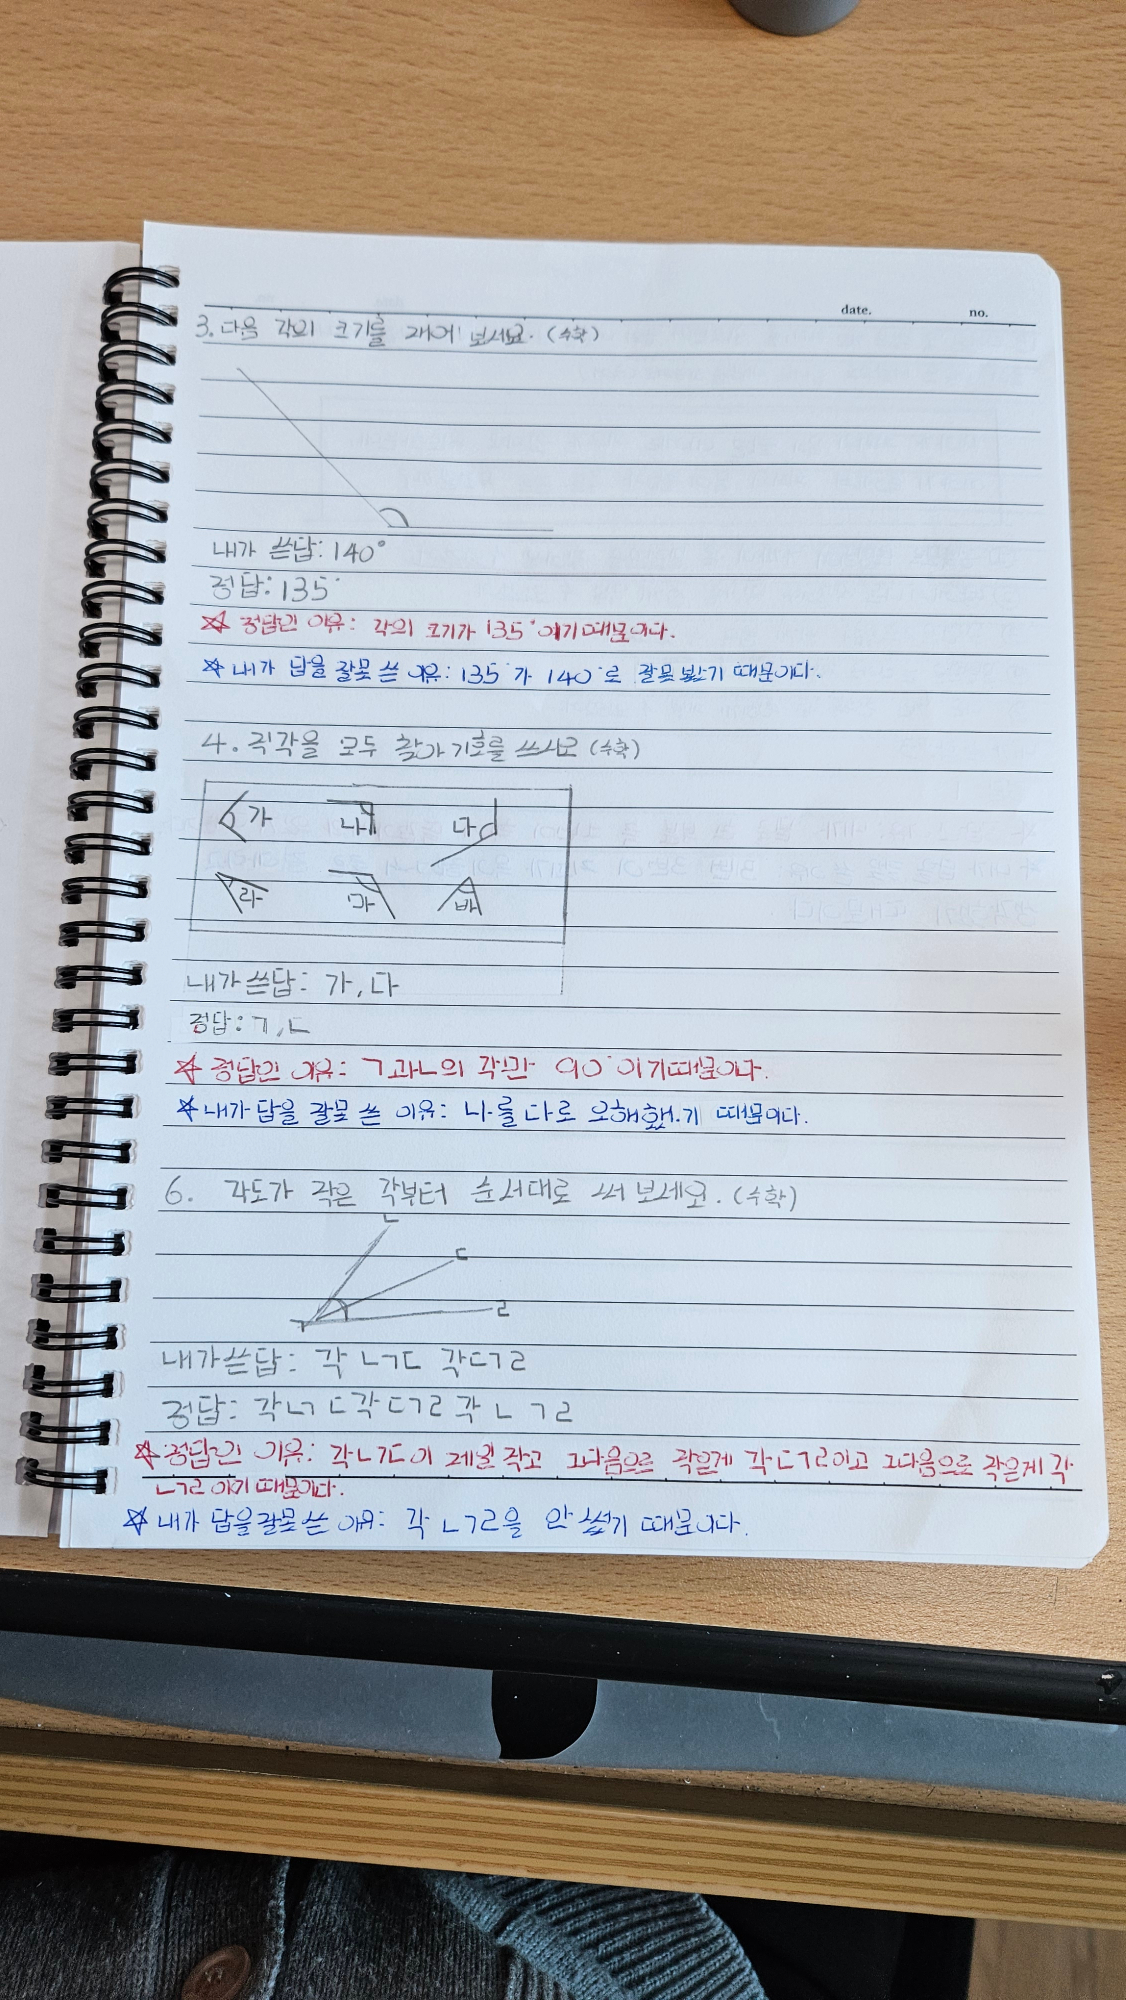 date. no.
3. 다음 각의 크기를 재어 보세요. (수학)
내가 쓴답: 140°
정답: 135°
☆ 정답인 이유: 각의 크기가 135°이기 때문이다.
☆ 내가 답을 잘못 쓴 이유: 135°가 140°로 잘못 봤기 때문이다.
4. 직각을 모두 찾아 기호를 쓰시오 (수학)
가 나 다
라 마 바
내가 쓴답: 가, 다
정답: ㄱ, ㄴ
☆ 정답인 이유: ㄱ과ㄴ의 각만 90°이기때문이다.
☆ 내가 답을 잘못 쓴 이유: 나를 다로 오해했기 때문이다.
6. 각도가 작은 각부터 순서대로 써 보세요. (수학)
ㄴ
ㄷ
ㄱ ㄹ
내가쓴답: 각 ㄴㄱㄷ 각ㄷㄱㄹ
정답: 각ㄴㄱㄷ각ㄷㄱㄹ 각 ㄴㄱㄹ
☆ 정답인 이유: 각ㄴㄱㄷ이 제일 작고 그다음으로 작은게 각ㄷㄱㄹ이고 그다음으로 작은게 각
ㄴㄱㄹ이기 때문이다.
☆ 내가 답을잘못 쓴 이유: 각 ㄴㄱㄹ을 안 썼기 때문이다.